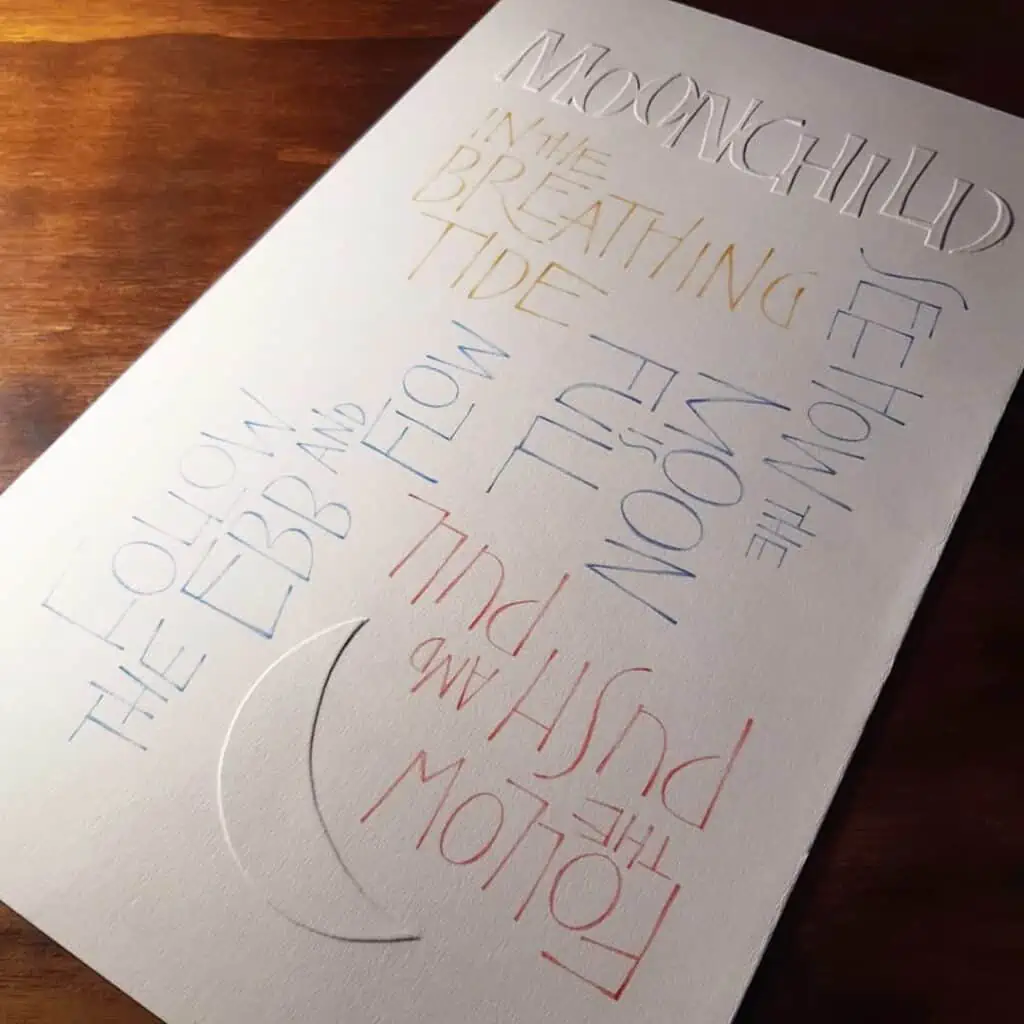 MOONCHILD
IN THE
BREATHING
TIDE
SEE HOW THE
MOON
IS
FULL
FOLLOW
THE
PUSH
AND
PULL
FOLLOW
THE EBB AND
FLOW